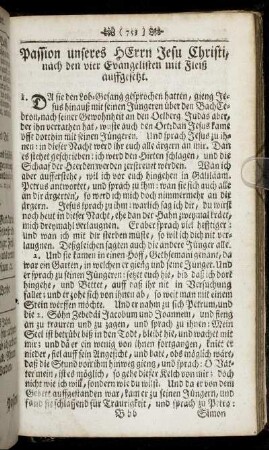 (753)
Passion unseres HErrn Jesu Christi,
nach den vier Evangelisten mit Fleiß
auffgesetzt.
1. DA sie den Lob-Gesang gesprochen hatten, gieng Je-
sus hinauß mit seinen Jüngeren über den Bach Ce-
dron, nach seiner Gewohnheit an den Oelberg. Judas aber,
der ihn verrathen hat, wuste auch den Ort: dan Jesus kame
offt dorthin mit seinen Jüngern. Und sprach Jesus zu ih-
nen: in dieser Nacht werd ihr euch alle ärgern an mir. Dan
es stehet geschrieben: ich werd den Hirten schlagen, und die
Schaaf der Heerden werden zerstreuet werden. Wan ich
aber aufferstehe, will ich vor euch hingehen in Galiläam.
Petrus antwortet, und sprach zu ihm: wan sie sich auch alle
an dir ärgerten, so werd ich mich doch nimmermehr an dir
ärgern. Jesus sprach zu ihm: warlich sag ich dir, du wirst
noch heut in dieser Nacht, ehe dan der Hahn zweymal kräet,
mich dreymahl verlaugnen. Er aber sprach viel hefftiger:
und wan ich mit dir sterben müste, so will ich dich nit ver-
laugnen. Desgleichen sagten auch die andere Jünger alle.
2. Und sie kamen in einen Hoff, Gethsemani genant, da
war ein Garten, in welchen er gieng und seine Jünger. Und
er sprach zu seinen Jüngeren: setzt euch hie, bis daß ich dort
hingehe, und Bettet, auff daß ihr nit in Versuchung
fallet: und er zohe sich von ihnen ab, so weit man mit einem
Stein werffen möchte. Und er nahm zu sich Petrum, und
die 2. Söhn Zebedäi Jacobum und Joannem, und fieng
an zu trauren und zu zagen, und sprach zu ihnen: Mein
Seel ist betrübt biß in den Tod, bleibt hie, und wachet mit
mir: und da er ein wenig von ihnen fortgangen, kniet er
nieder, fiel auff sein Angesicht, und bate, obs möglich wäre,
daß die Stund von ihm hinweg gieng, und sprach: O Vat-
ter mein, ists möglich, so gehe dieser Kelch von mir: doch
nicht wie ich will, sondern wie du wilst. Und da er von dem
Gebett auffgestanden war, kam er zu seinen Jüngern, und
fand sie schlaffend für Traurigkeit, und sprach zu Petro:
Bbb Simon